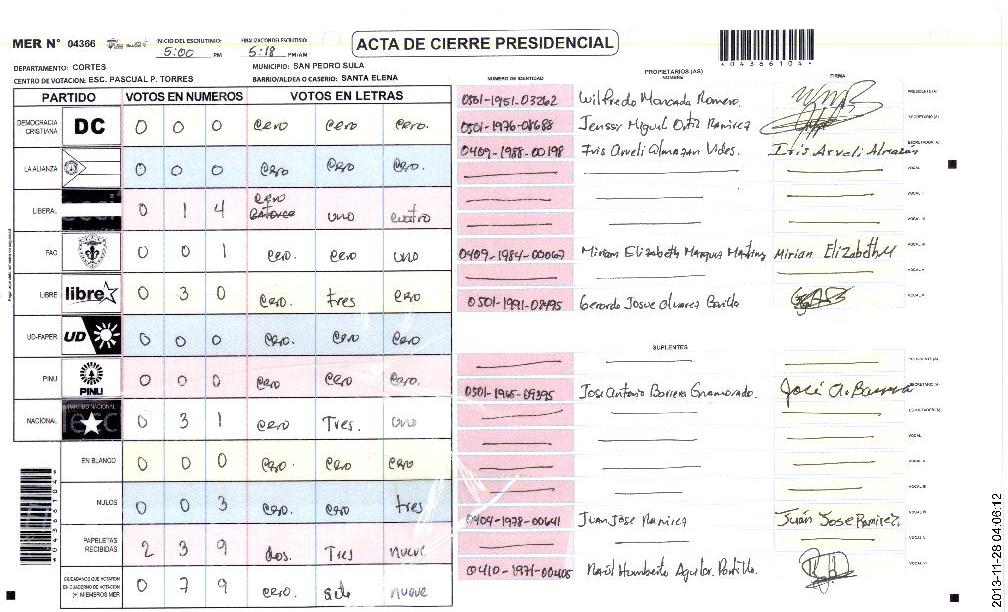 MER N° 04366
INICIO DEL ESCRUTINIO: 5:00 PM
FINALIZACION DEL ESCRUTINIO: 5:18 PM/AM
ACTA DE CIERRE PRESIDENCIAL
DEPARTAMENTO: CORTES
MUNICIPIO: SAN PEDRO SULA
CENTRO DE VOTACION: ESC. PASCUAL P. TORRES
BARRIO/ALDEA O CASERIO: SANTA ELENA
PARTIDO VOTOS EN NUMEROS VOTOS EN LETRAS
DEMOCRACIA CRISTIANA DC 0 0 0 cero cero cero.
LA ALIANZA 0 0 0 cero cero cero.
LIBERAL 0 1 4 cero catorce uno cuatro
FAC 0 0 1 cero. cero uno
LIBRE libre 0 3 0 cero. tres cero
UD-FAPER UD 0 0 0 cero. cero cero
PINU PINU 0 0 0 cero cero cero.
NACIONAL PARTIDO NACIONAL 0 3 1 cero Tres. uno
EN BLANCO 0 0 0 cero. cero cero
NULOS 0 0 3 cero. cero tres
PAPELETAS RECIBIDAS 2 3 9 dos. Tres nueve
CIUDADANOS QUE VOTARON EN CUADERNO DE VOTACION (+) MIEMBROS MER 0 7 9 cero. siete nueve
PROPIETARIOS (AS)
NUMERO DE IDENTIDAD NOMBRE FIRMA
0501-1951-03262 Wilfredo Moncada Romero. PRESIDENTE (A)
0501-1976-08688 Jenssy Miguel Ortiz Ramirez SECRETARIO (A)
0409-1988-00198 Iris Arveli Almazan Vides. Iris Arveli Almazan ESCRUTADOR (A)
VOCAL
VOCAL I
VOCAL II
0409-1984-00067 Miriam Elizabeth Marquez Martinez Mirian Elizabeth M VOCAL III
VOCAL IV
0501-1991-02495 Gerardo Josue Alvarez VOCAL V
SUPLENTES
PRESIDENTE (A)
0501-1965-09395 Jose Antonio Barrera Enamorado. José A. Barrera SECRETARIO (A)
ESCRUTADOR (A)
VOCAL
VOCAL II
VOCAL III
0404-1978-00641 Juan Jose Ramirez Juán Jose Ramirez. VOCAL IV
VOCAL V
0410-1971-00405 Raúl Humberto Aguilar Portillo. VOCAL VI
04366104
2013-11-28 04:06:12